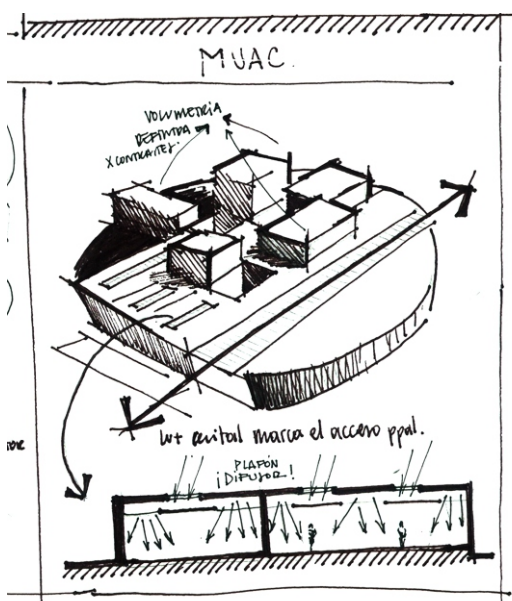 MUAC.
VOLUMETRÍA
DEFINIDA
X CONTRASTES.
luz cenital marca el acceso ppal.
PLAFÓN
¡DIFUSOR!